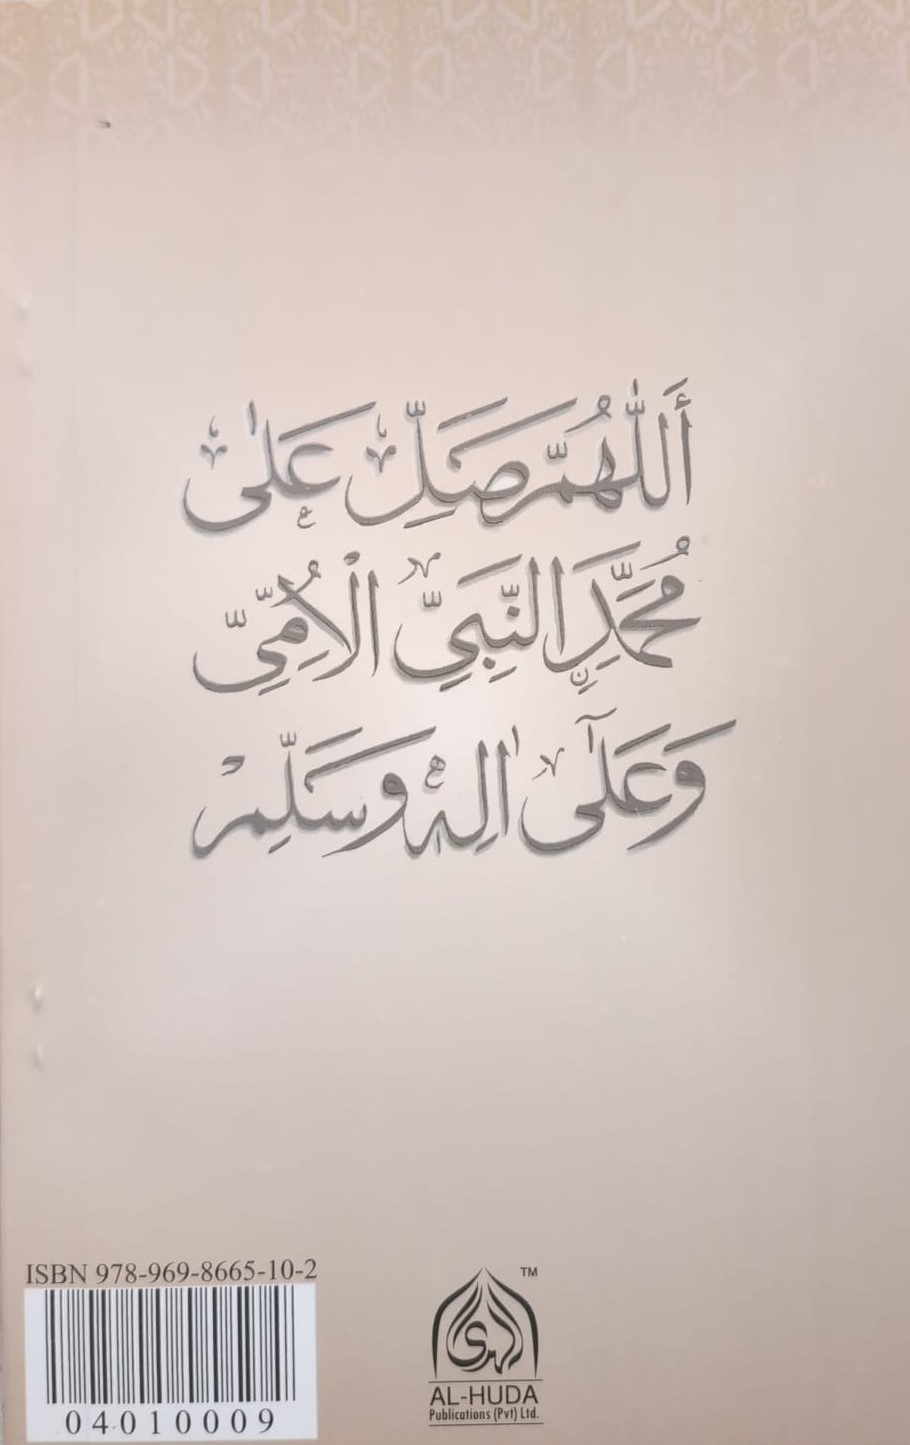 أَللّٰهُمَّ صَلِّ عَلٰى
مُحَمَّدِ ۨالنَّبِىِّ الْاُمِّىِّ
وَعَلٰٓى اٰلِهٖ وَسَلِّمْ
ISBN 978-969-8665-10-2
04010009
الهدى
TM
AL-HUDA
Publications (Pvt) Ltd.